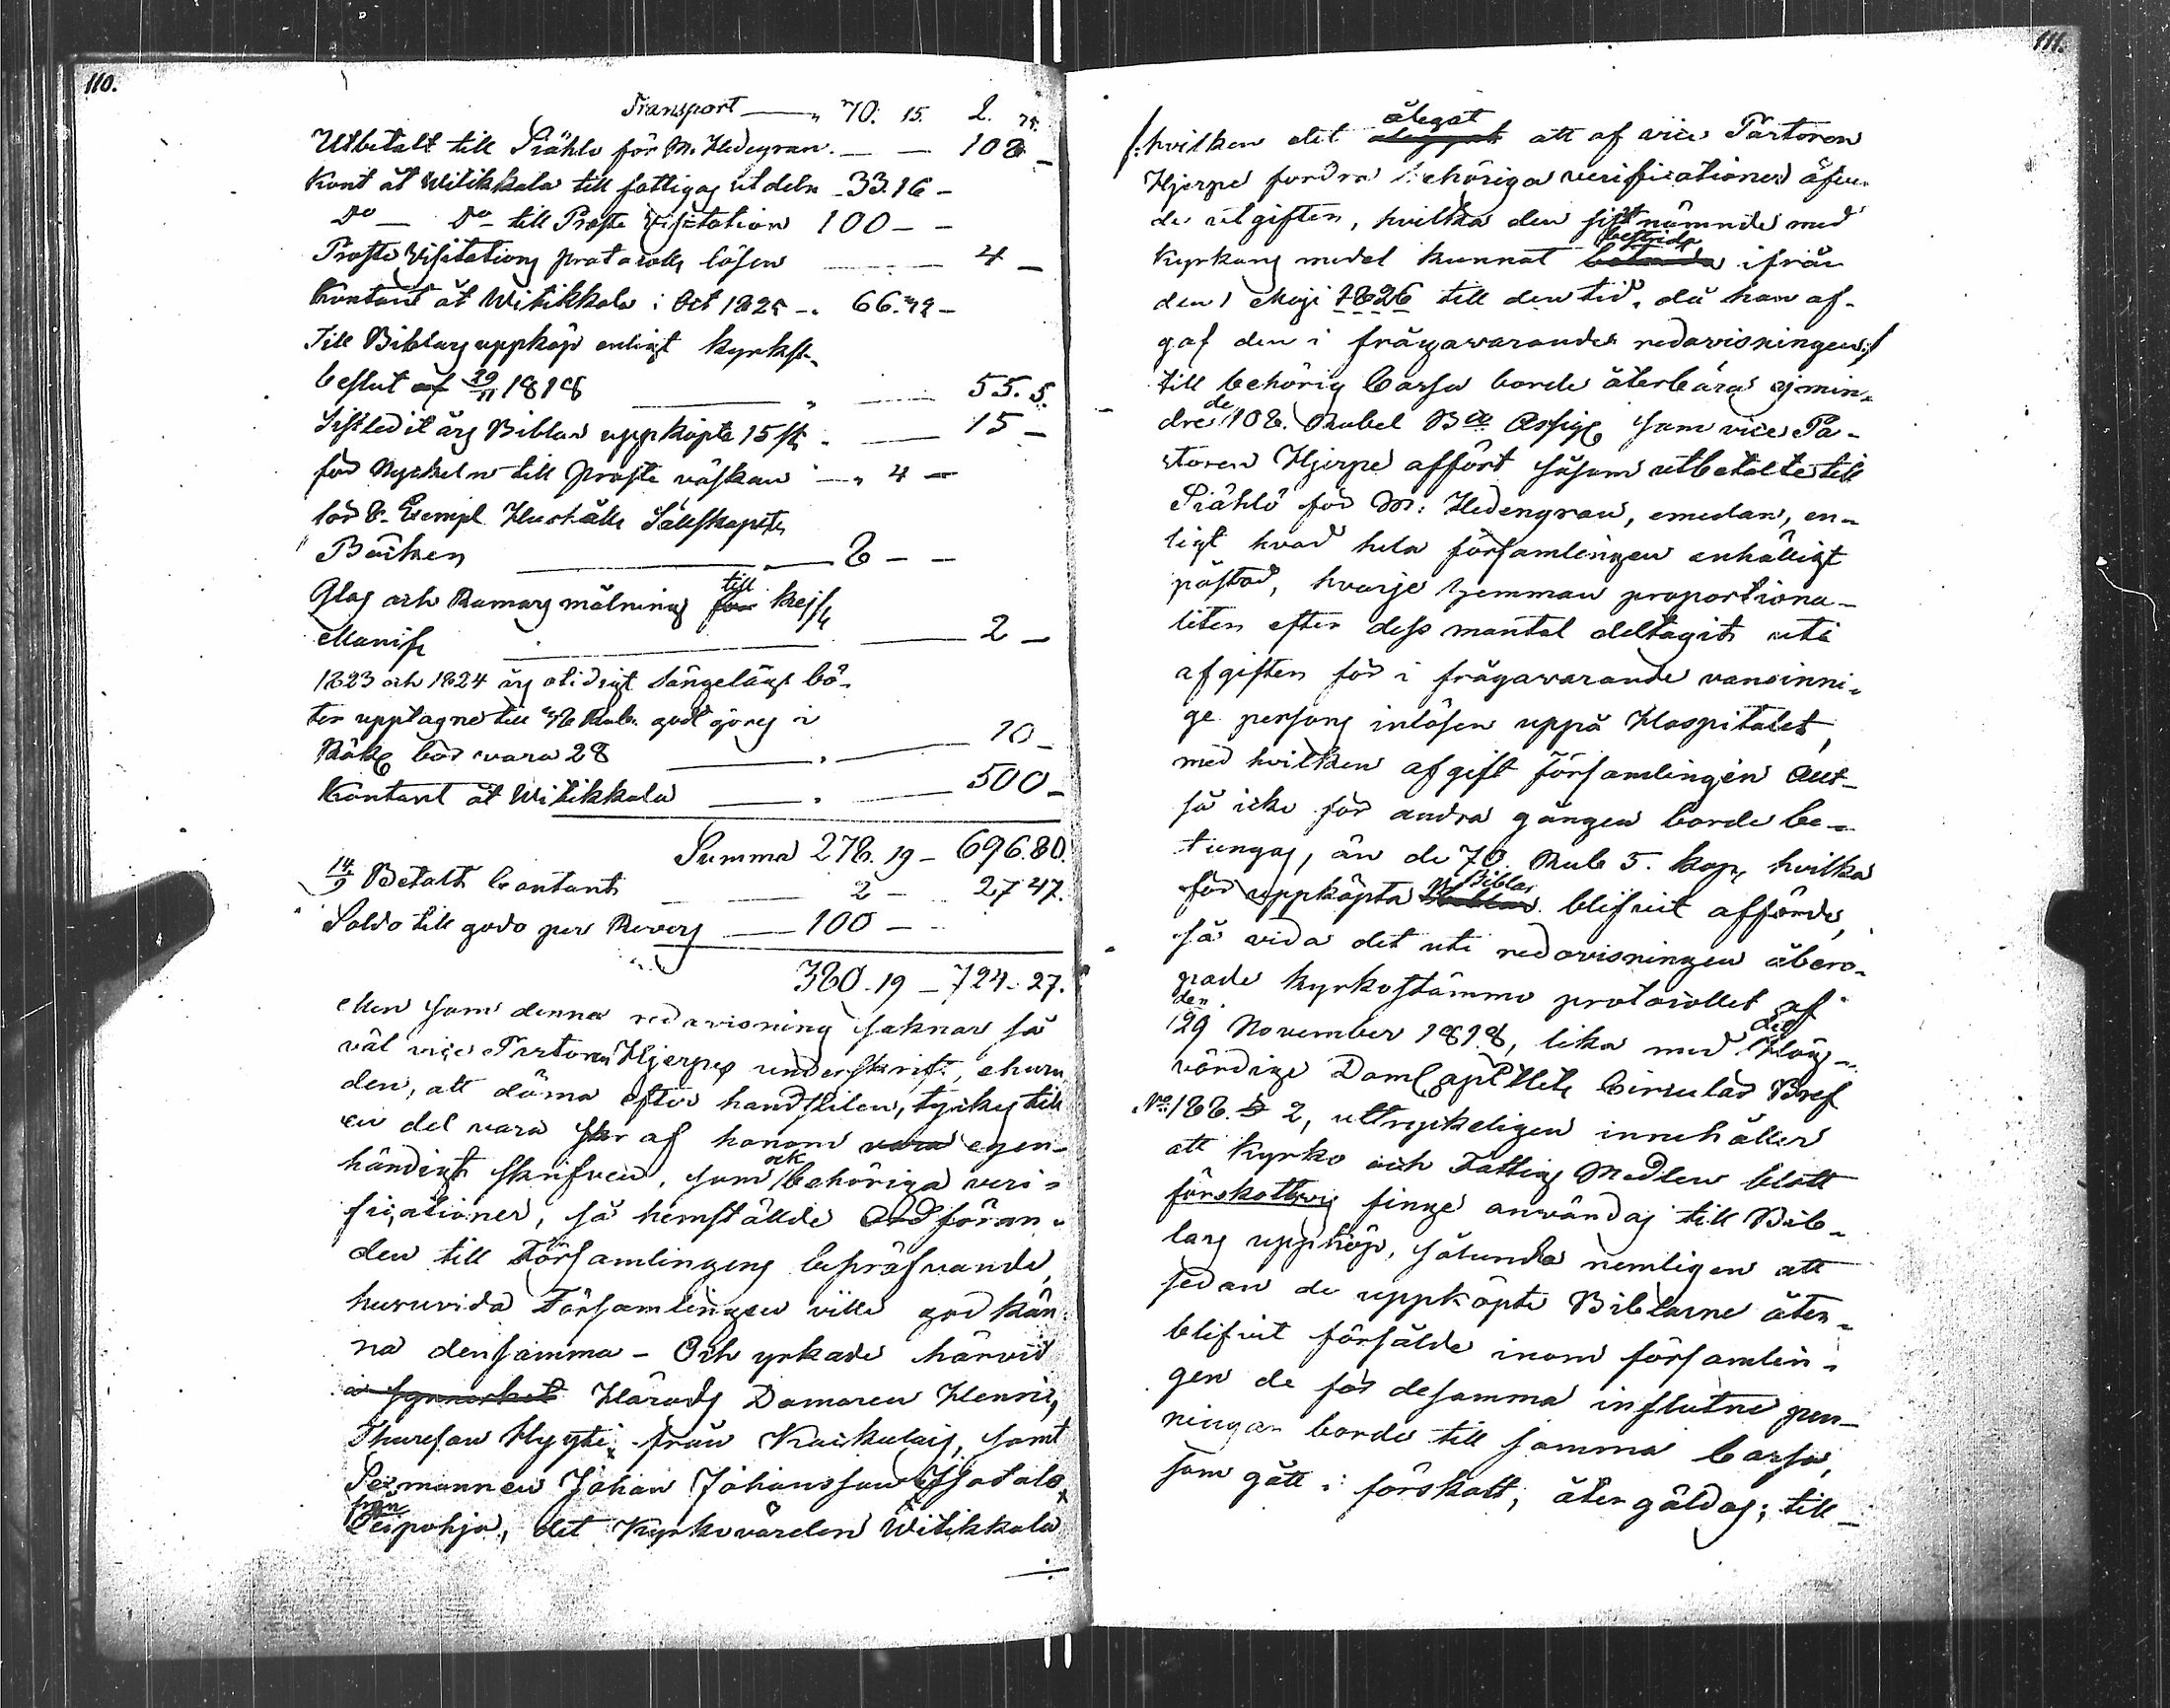 110.
Transport — " 70. 15. 2. 75.
Utbetalt till Siählö för M. Hedengran. — — 108 —
Kont åt Witikkala till fattigas utdeln - 33.16 —
Do — Do — till Prosts Visitation 100 — —
Prosts Visitations protocolls lösen — 4 —
Kontant åt Witikkala i Oct 1825 — 66.32 —
Till Biblars uppköp enligt Kyrkst.
beslut af 29/11 1818 — " — 55. 5.
Sistledit års Biblar uppköpte 15 st. — 15 —
för Nyckeln till Prosts väskan — " 4 —
för 8. Exempl. Hushålls Sällskapets
Böcker — 8 — —
Glas och Ramars målning för till Kejs.
Manif. — 2 —
1823 och 1824 års olidigt sängelägs bö-
ter upptagne till 48 Rub. godt göres i
Räkg bör vara 28 — 20 —
Kontant åt Witikkala — " — 500 —
Summa 278. 19 — 696.80.
14/9 Betalt Contant — 2 — 27 47.
Saldo till godo per Revers — 100 —
380. 19 — 724. 27.
Men som denna redovisning saknar så
väl vice Pastoren Hjerpes underskrift, ehuru
den, att döma efter handstilen, tyckes till
en del vara af honom vara egen-
händigt skrifven, som ock behöriga veri-
ficationer, så hemstälde Ordföran-
den till Församlingens bepröfvande,
huruvida Församlingen ville godkän-
na densamma — Och yrkade härvid
Härads Domaren Henric
Thuresson Hyyti från Kaikulais, samt
Sexmannen Johan Johansson Isotalo
från Peipohja, det Kyrkovärden Witikkala
111.
/: hvilken det åleget att af vice Pastoren
Hjerpe fordra behöriga verificationer öfver
de utgifter, hvilka den sistnämnde med
Kyrkans medel kunnat bestrida ifrån
den 1 Maji 1826 till den tid, då han af-
gaf den i frågavarande redovisningen :/
till behörig Cassa borde återbära ej min-
dre de 108. Rubel Bco Assigr som vice Pa-
storen Hjerpe affört såsom utbetalte till
Siählö för M: Hedengran, emedan, en-
ligt hvad hela församlingen enhälligt
påstod, hvarje hemman proportiona-
liter efter dess mantal deltagit uti
afgiften för i frågavarande vansinni-
ge persons inlösen uppå Hospitalet,
med hvilken afgift församlingen allt-
så icke för andra gången borde be-
tungas, än de 70. Rub 5. kop., hvilka
för uppköpta Biblar blifvit afförde,
så vida det uti redovisningen åbero-
pade Kyrkostämmo protocollet af
den 29 November 1818, lika med det Hög-
vördige DomCapitlets Circulär Bref
No: 188. § 2, uttryckeligen innehåller
att Kyrko och Fattigs Medlen blott
förskottsvis finge användas till Bib-
lars uppköp, sålunda nemligen att
sedan de uppköpte Biblarne åter-
blifvit försålde inom församlin-
gen de för desamma influtne pen-
ningar borde till samma Cassa,
som gått i förskott, återgäldas; till-